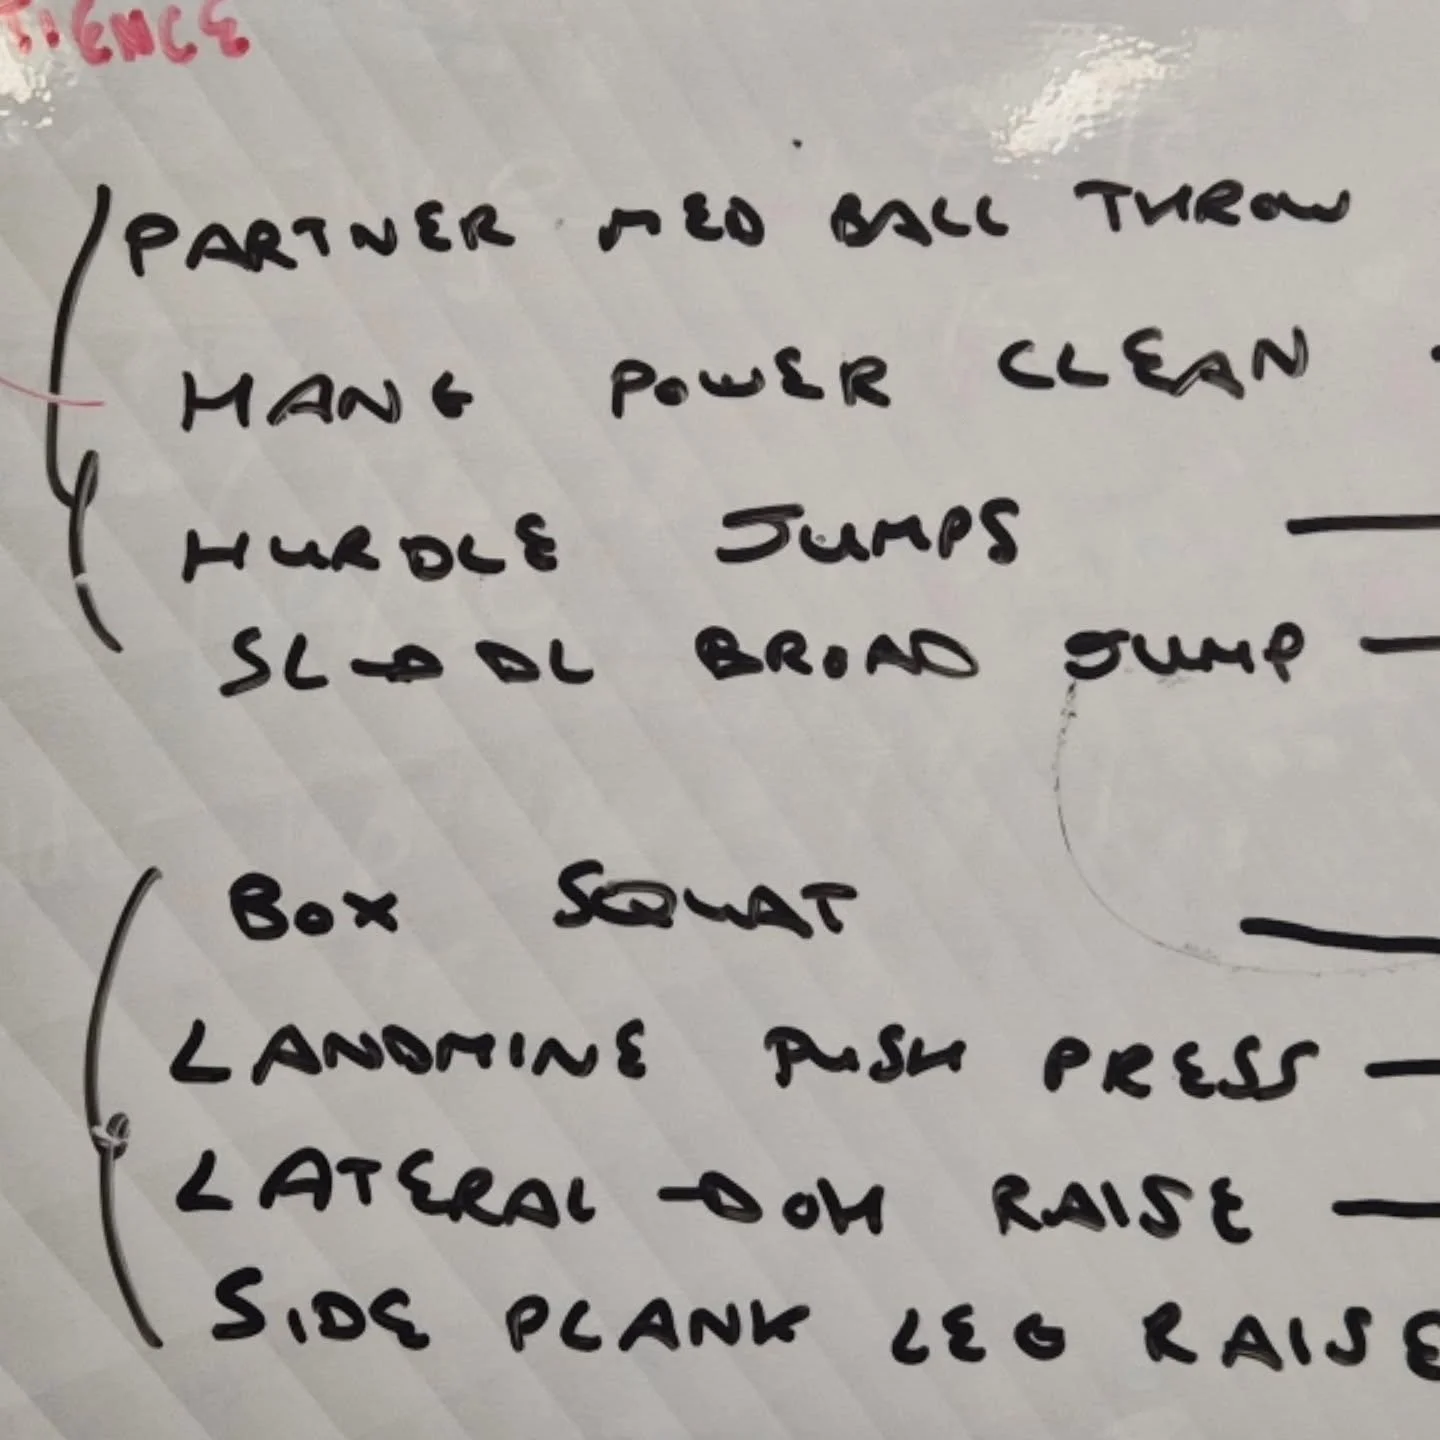 IENCE
PARTNER MED BALL THROW
HANG POWER CLEAN
HURDLE JUMPS —
SL → DL BROAD JUMP —
BOX SQUAT —
LANDMINE PUSH PRESS —
LATERAL → OH RAISE —
SIDE PLANK LEG RAISE